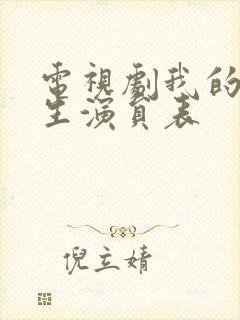 電視劇我的
生演員表
倪立婧